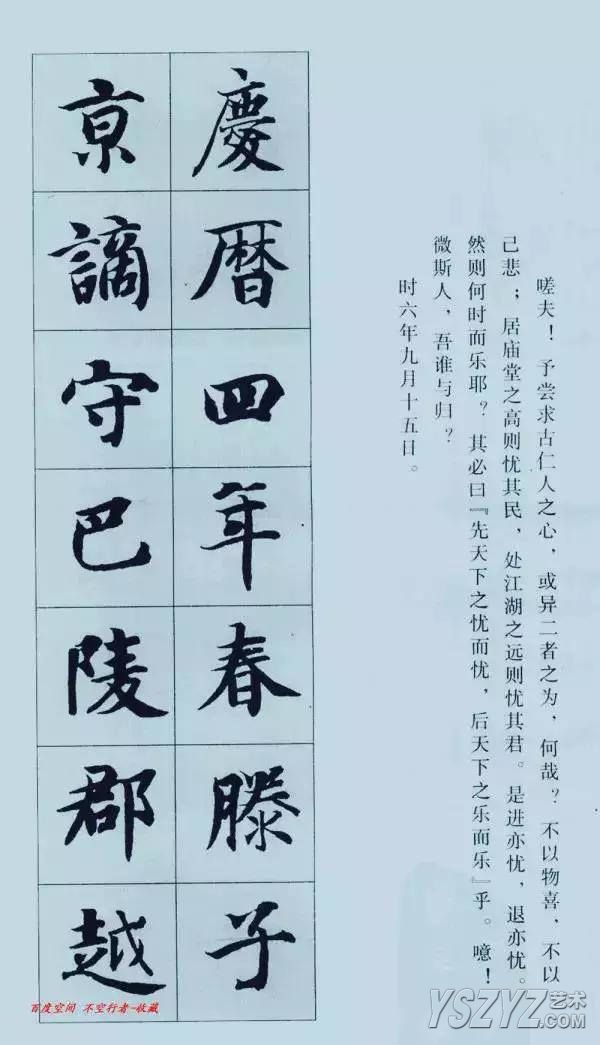 嗟夫！予尝求古仁人之心，或异二者之为，何哉？不以物喜，不以
己悲；居庙堂之高则忧其民，处江湖之远则忧其君。是进亦忧，退亦忧。
然则何时而乐耶？其必曰『先天下之忧而忧，后天下之乐而乐』乎。噫！
微斯人，吾谁与归？
时六年九月十五日。
慶曆四年春滕子
京謫守巴陵郡越
百度空间 不空行者-收藏
YSZYZ艺术
.COM